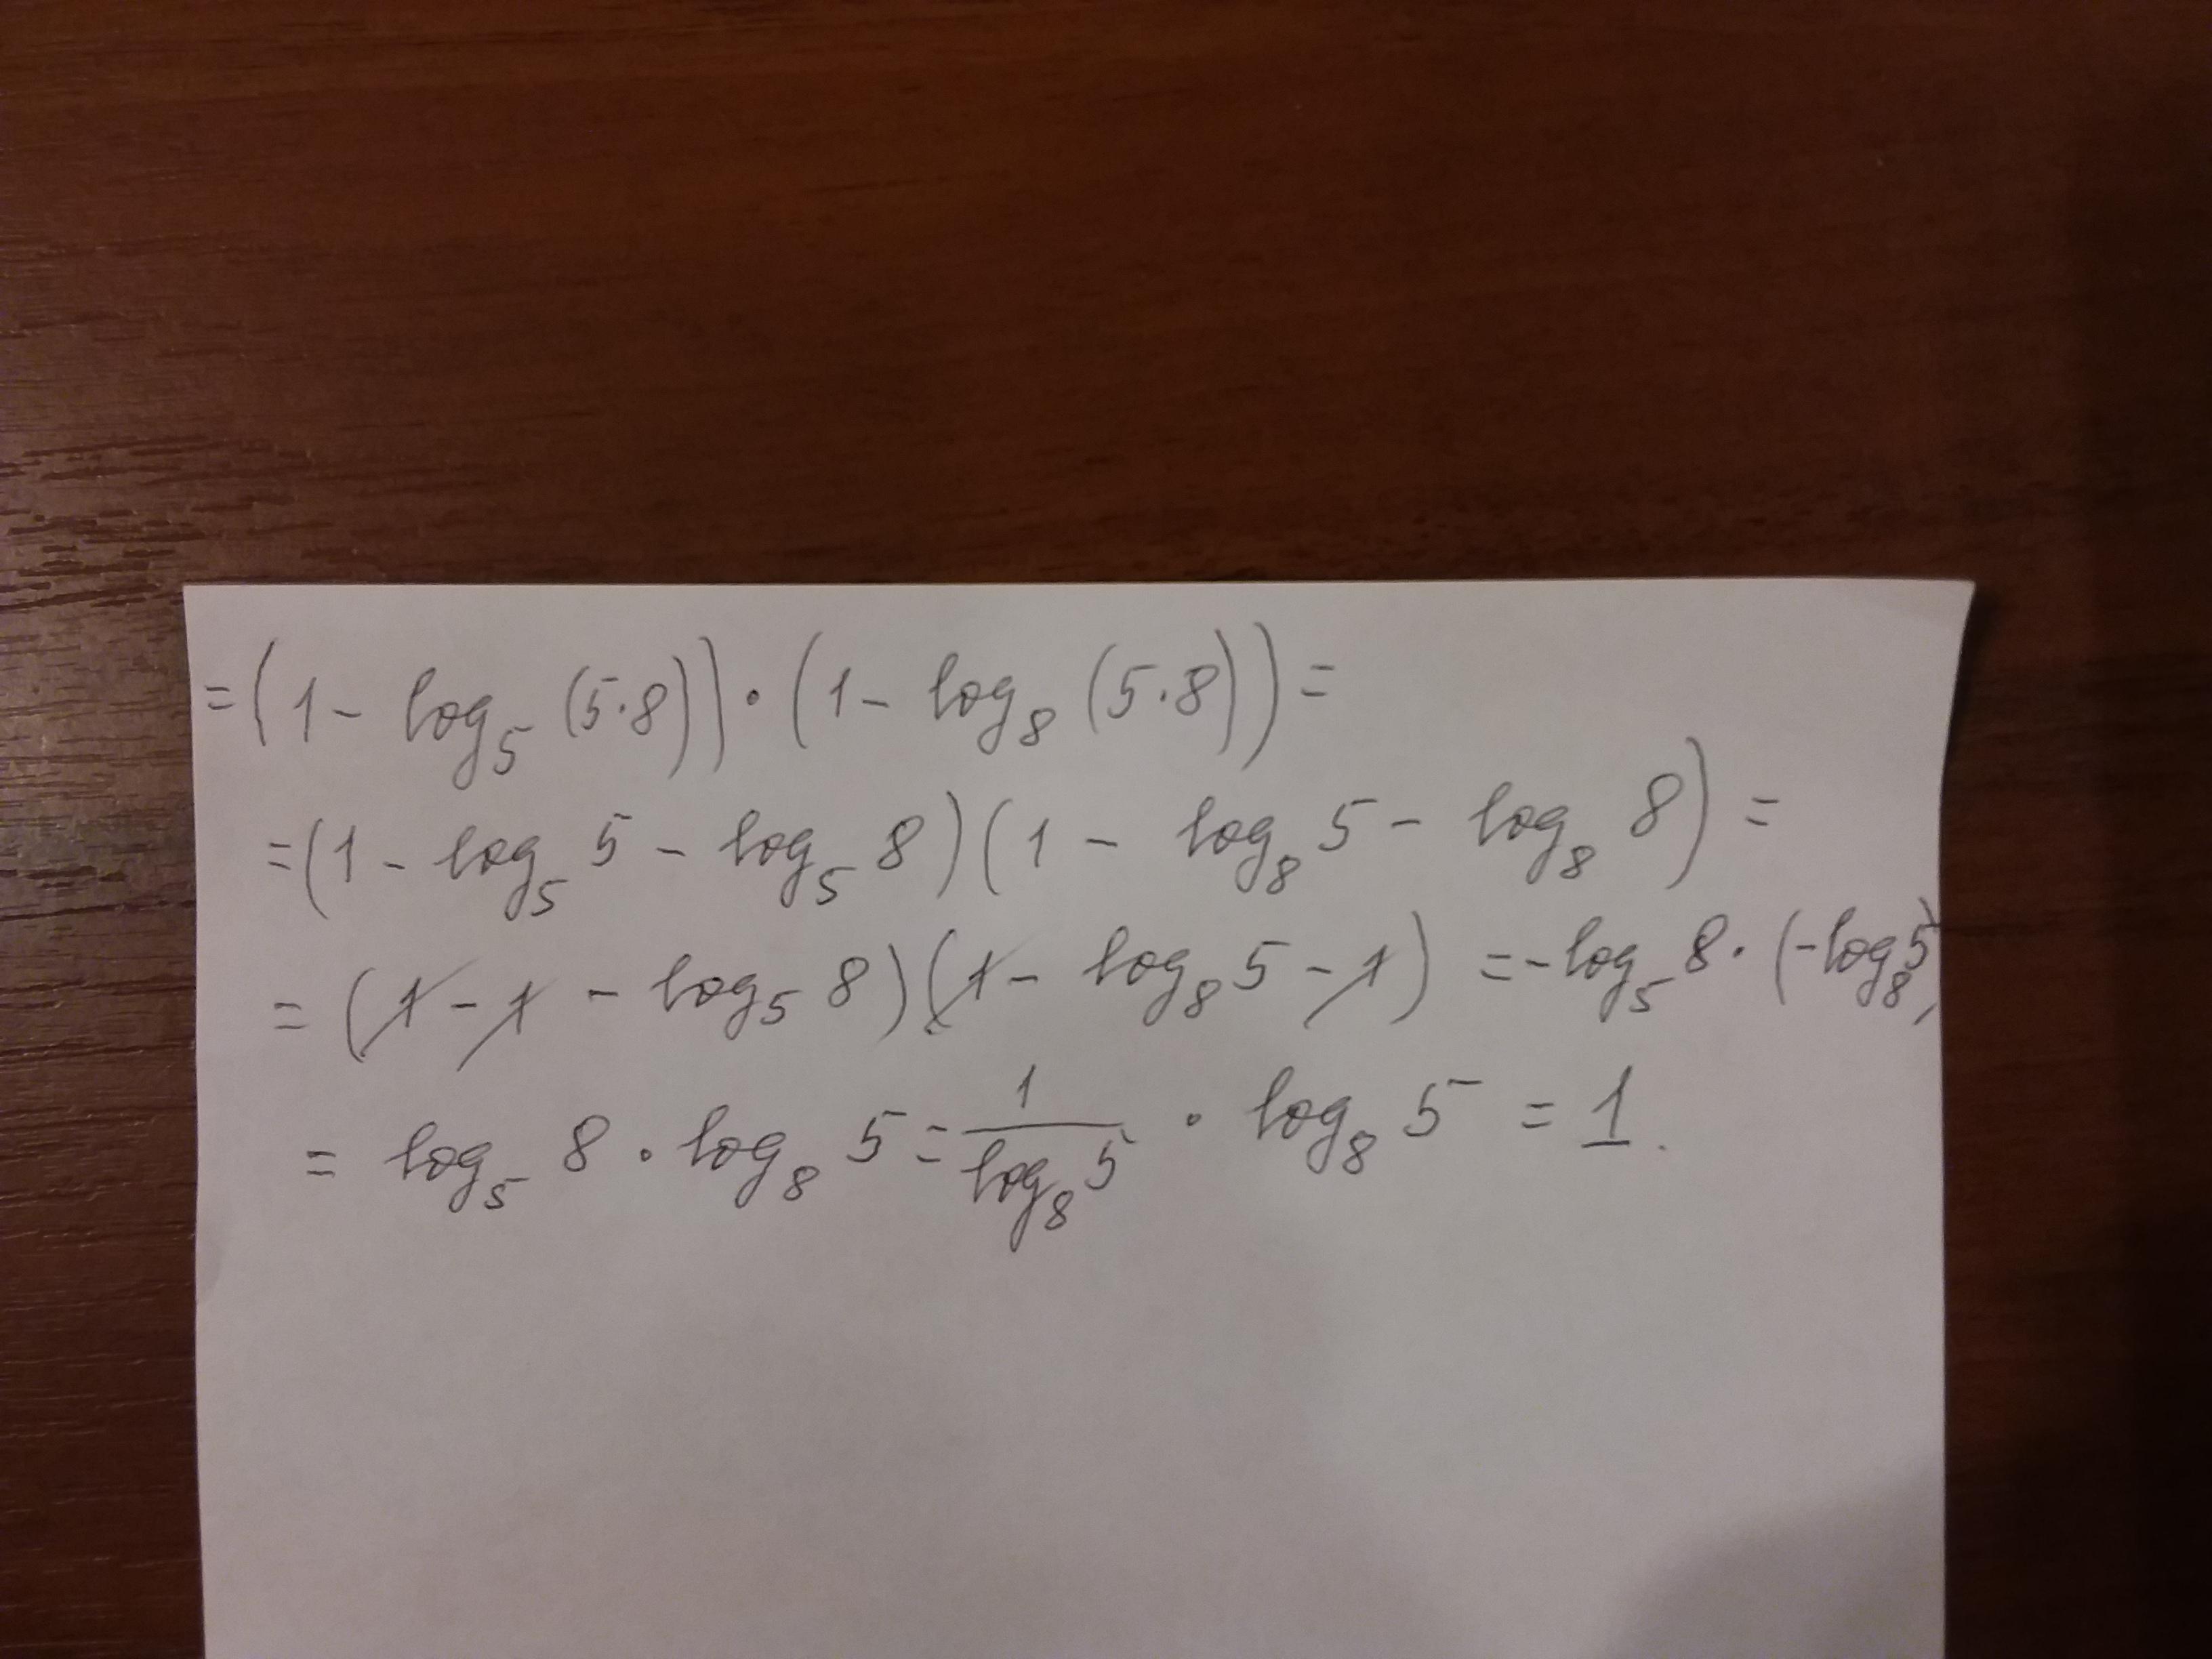 =(1-log₅(5·8))·(1-log₈(5·8))=
=(1-log₅5-log₅8)(1-log₈5-log₈8)=
=(1-1-log₅8)(1-log₈5-1)=-log₅8·(-log₈5)
=log₅8·log₈5=1/log₈5·log₈5=1.